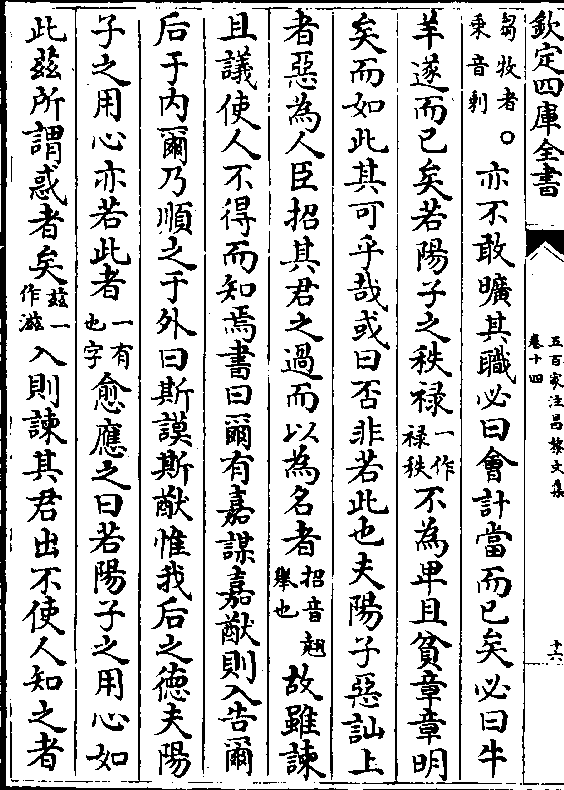 欽定四庫全書
五百家注昌黎文集
卷十四
十六
芻牧者
乗音剩
○亦不敢曠其職必曰會計當而已矣必曰牛
羊遂而已矣若陽子之秩禄一作
禄秩不為卑且貧章章明
矣而如此其可乎哉或曰否非若此也夫陽子惡訕上
者惡為人臣招其君之過而以為名者招音翹
舉也故雖諫
且議使人不得而知焉書曰爾有嘉謀嘉猷則入告爾
后于内爾乃順之于外曰斯謨斯猷惟我后之德夫陽
子之用心亦若此者一有
也字愈應之曰若陽子之用心如
此兹所謂惑者矣兹一
作滋入則諫其君出不使人知之者